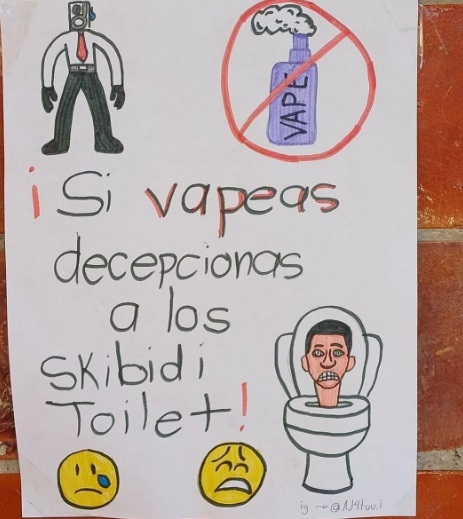 VAPE
¡Si vapeas
decepcionas
a los
skibidi
Toilet!
ig → @N4tuu.i